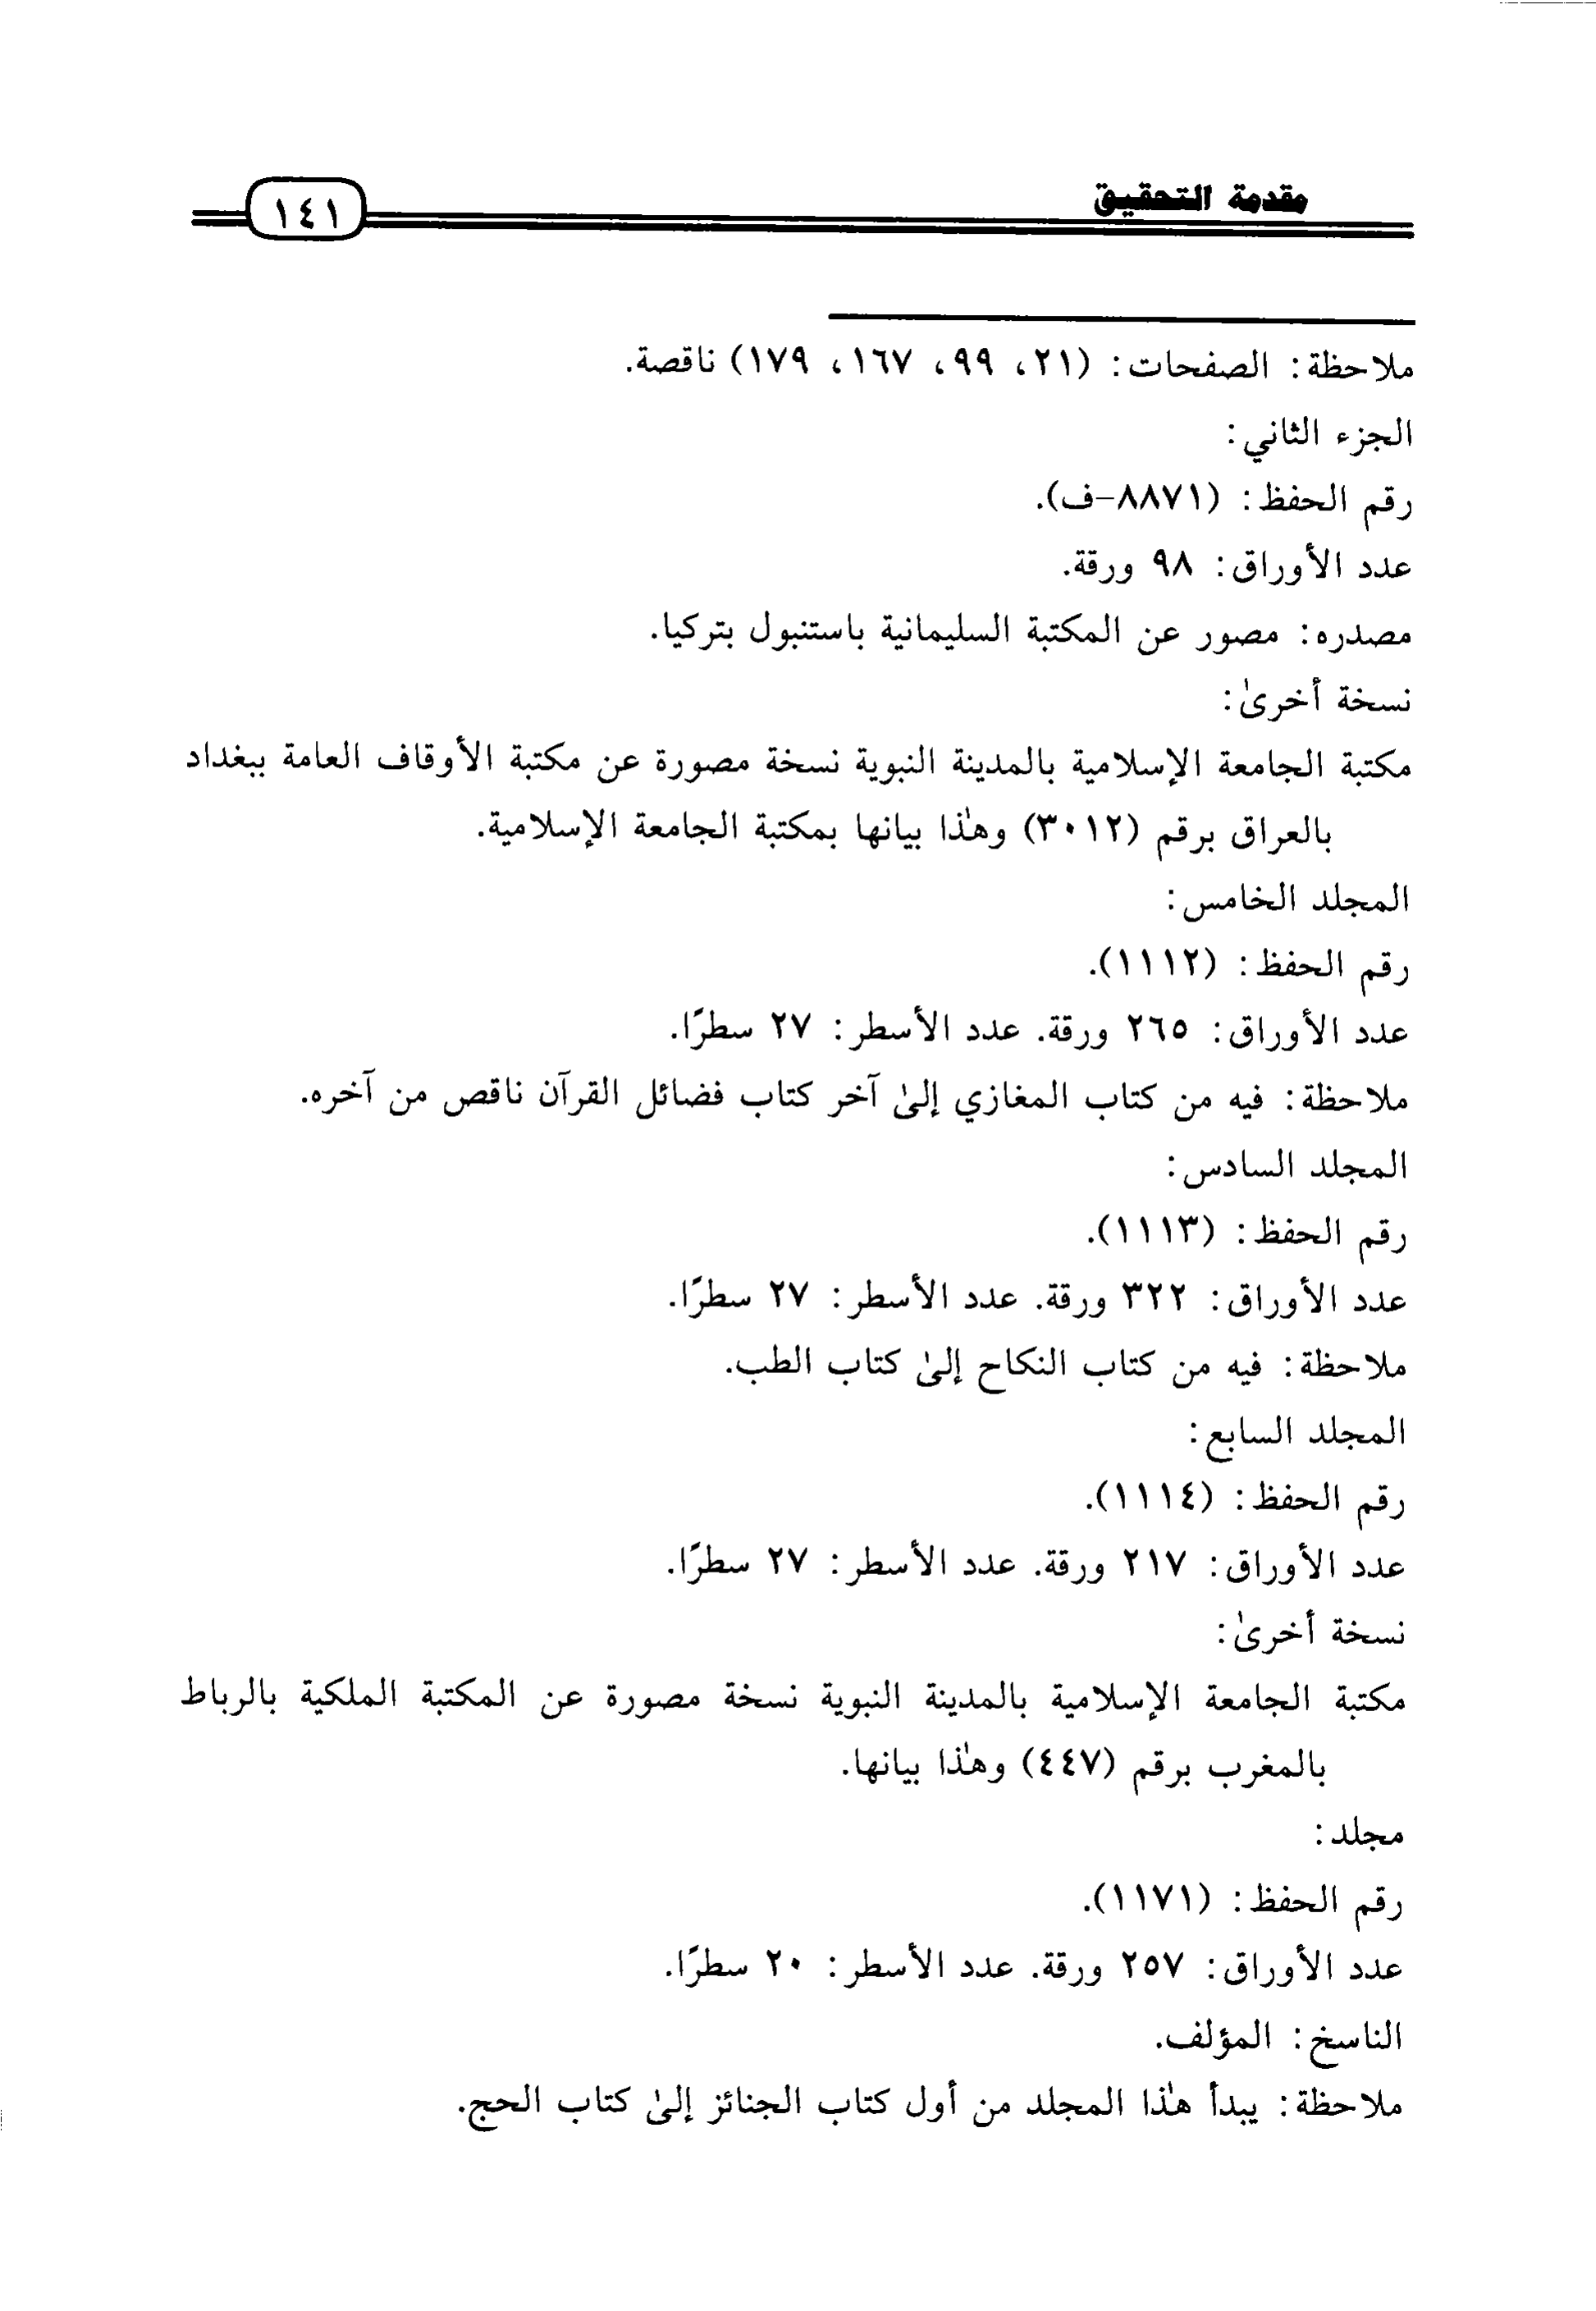 مقدمة التحقيق
١٤١
ملاحظة: الصفحات: (٢١، ٩٩، ١٦٧، ١٧٩) ناقصة.
الجزء الثاني:
رقم الحفظ: (٨٨٧١-ف).
عدد الأوراق: ٩٨ ورقة.
مصدره: مصور عن المكتبة السليمانية باستنبول بتركيا.
نسخة أخرىٰ:
مكتبة الجامعة الإسلامية بالمدينة النبوية نسخة مصورة عن مكتبة الأوقاف العامة ببغداد
بالعراق برقم (٣٠١٢) وهٰذا بيانها بمكتبة الجامعة الإسلامية.
المجلد الخامس:
رقم الحفظ: (١١١٢).
عدد الأوراق: ٢٦٥ ورقة. عدد الأسطر: ٢٧ سطرًا.
ملاحظة: فيه من كتاب المغازي إلىٰ آخر كتاب فضائل القرآن ناقص من آخره.
المجلد السادس:
رقم الحفظ: (١١١٣).
عدد الأوراق: ٣٢٢ ورقة. عدد الأسطر: ٢٧ سطرًا.
ملاحظة: فيه من كتاب النكاح إلىٰ كتاب الطب.
المجلد السابع:
رقم الحفظ: (١١١٤).
عدد الأوراق: ٢١٧ ورقة. عدد الأسطر: ٢٧ سطرًا.
نسخة أخرىٰ:
مكتبة الجامعة الإسلامية بالمدينة النبوية نسخة مصورة عن المكتبة الملكية بالرباط
بالمغرب برقم (٤٤٧) وهٰذا بيانها.
مجلد:
رقم الحفظ: (١١٧١).
عدد الأوراق: ٢٥٧ ورقة. عدد الأسطر: ٢٠ سطرًا.
الناسخ: المؤلف.
ملاحظة: يبدأ هٰذا المجلد من أول كتاب الجنائز إلىٰ كتاب الحج.